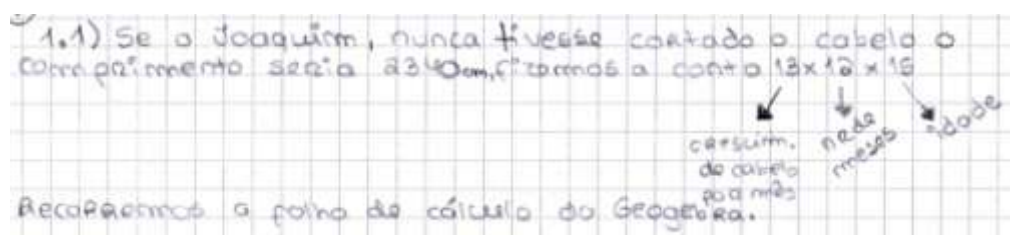 1.1) Se o Joaquim, nunca tivesse cortado o cabelo o
comprimento seria 2340cm, fizemos a conta 13x12x15
crescim. de cabelo por mês
nº de meses
idade
Recorremos a folha de cálculo do Geogebra.